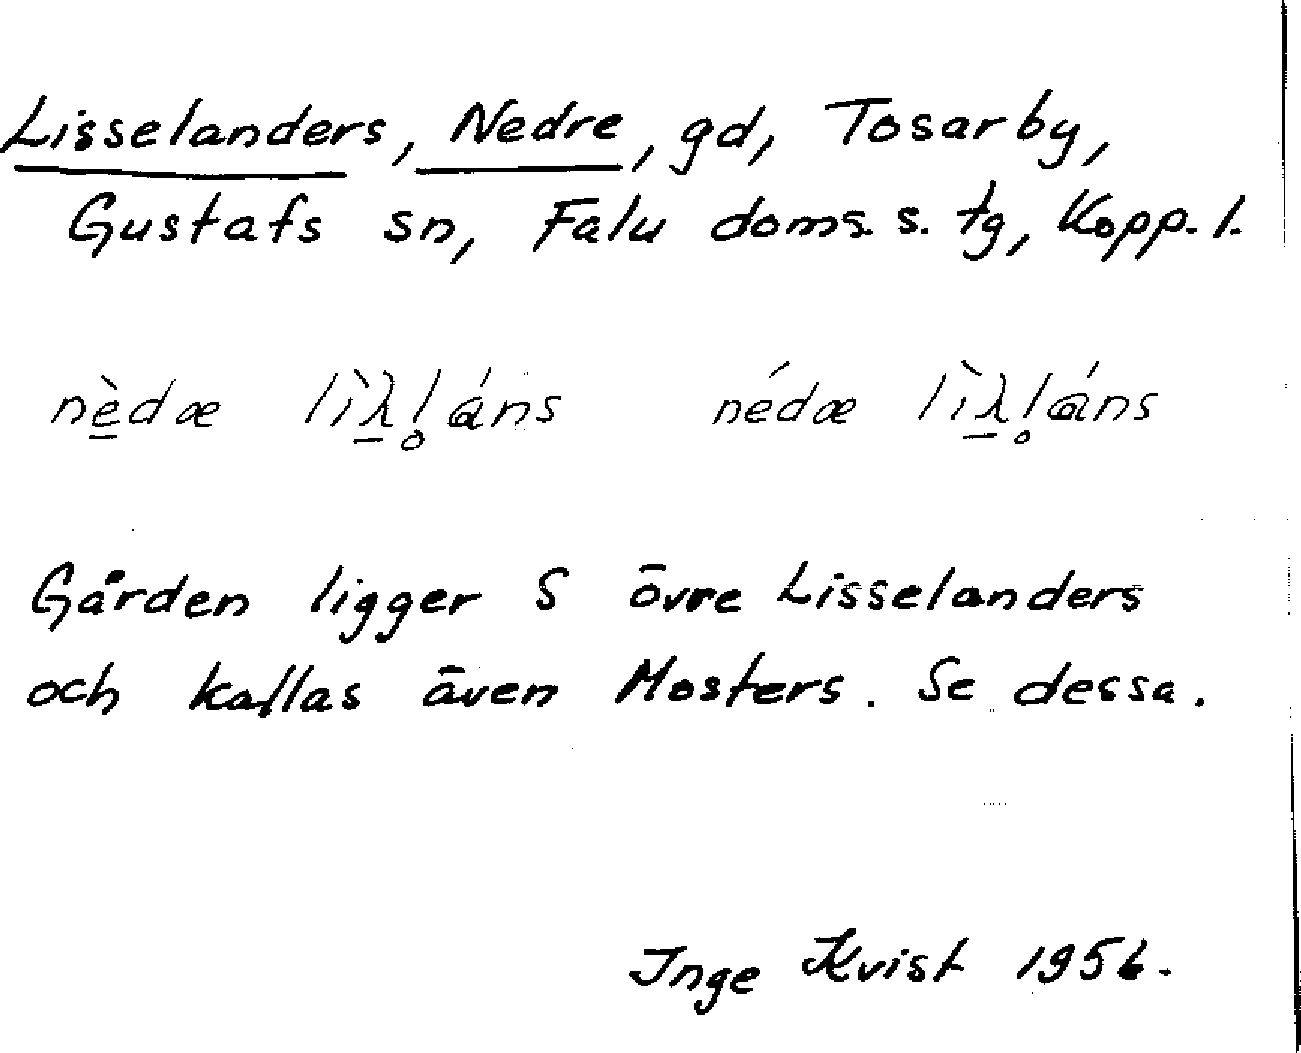 Lisselanders, Nedre, gd, Tosarby,
Gustafs sn, Falu doms. s. tg, Kopp. l.
nèdæ lìλl̥áns nédæ lìλl̥áns
Gården ligger S övre Lisselanders
och kallas även Mosters. Se dessa.
Inge Kvist 1956.